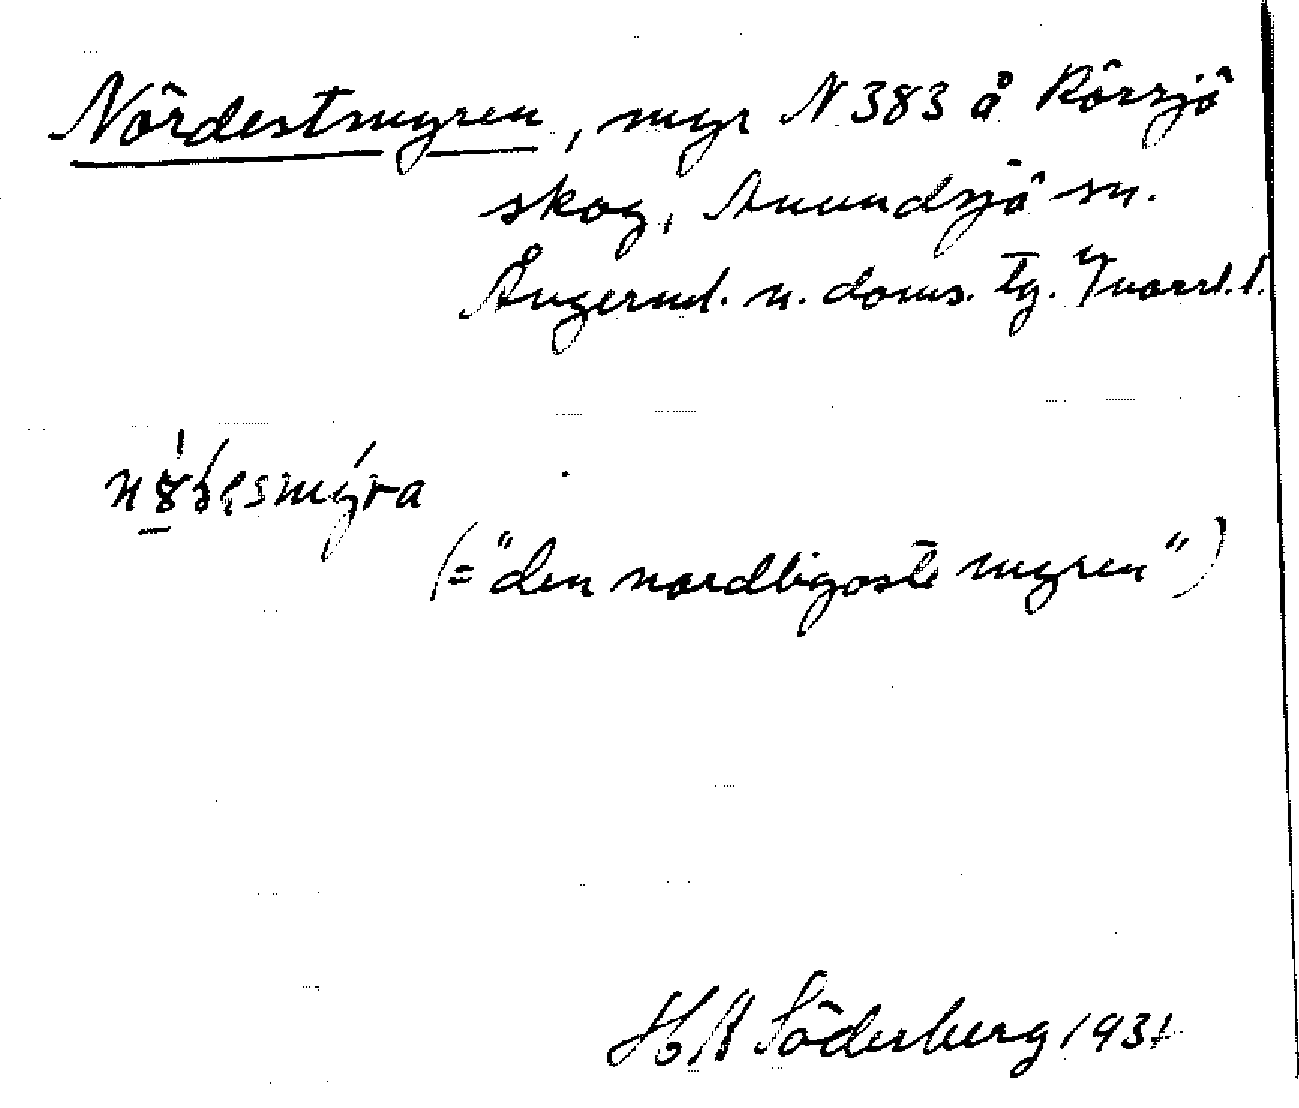 Nördestmyren, myr N 383 å Rörsjö
skog, Anundsjö sn.
Ångerml. n. doms. tg. Vnorrl. l.
(="den nordligoste myren")
H B Söderberg 1931